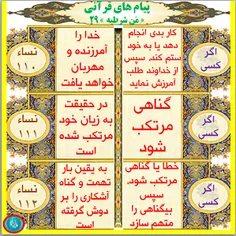 پیام های قرآنی
« مَن شرطیه » ۲۹
اگر کسی
کار بدی انجام
دهد یا به خود
ستم کند، سپس
از خداوند طلب
آمرزش نماید
خدا را
آمرزنده و
مهربان
خواهد یافت
نساء
۱۱۰
اگر کسی
گناهی
مرتکب
شود
در حقیقت
به زیان خود
مرتکب شده
است
نساء
۱۱۱
اگر کسی
خطا یا گناهی
مرتکب شود
سپس
بیگناهی را
متهم سازد
به یقین بار
تهمت و گناه
آشکاری را بر
دوش گرفته
است
نساء
۱۱۲